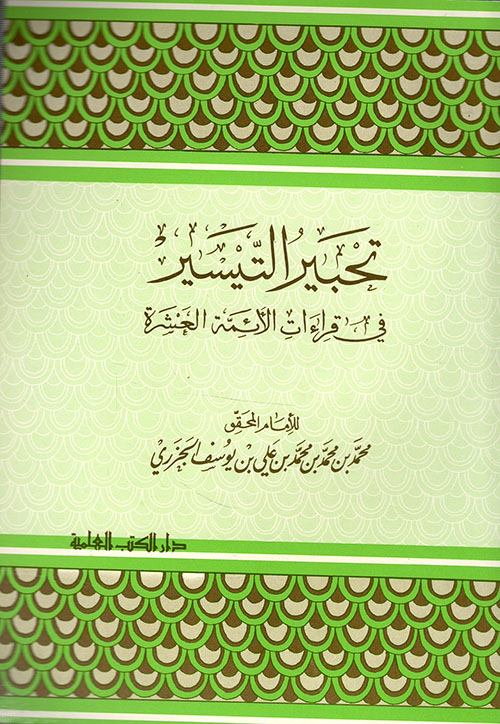 تحبير التيسير
في قراءات الأئمة العشرة
للإمام المحقق
محمد بن محمد بن محمد بن علي بن يوسف الجزري
دار الكتب العلمية